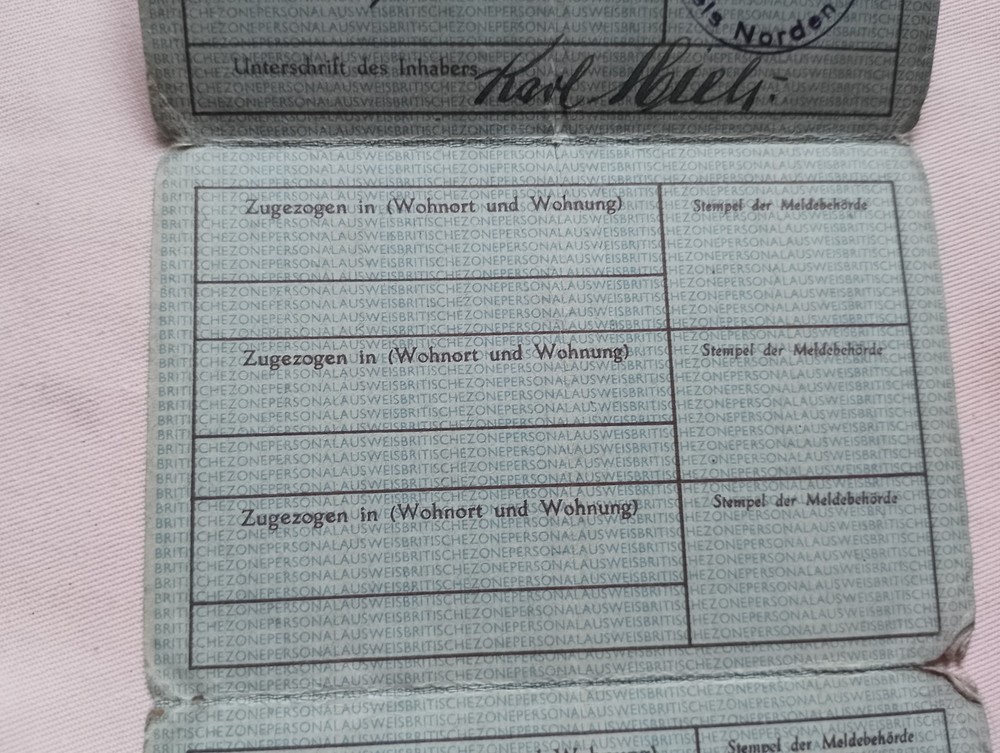 Kreis Norden
Unterschrift des Inhabers Karl
Zugezogen in (Wohnort und Wohnung)
Stempel der Meldebehörde
Zugezogen in (Wohnort und Wohnung)
Stempel der Meldebehörde
Zugezogen in (Wohnort und Wohnung)
Stempel der Meldebehörde
Stempel der Meldebehörde